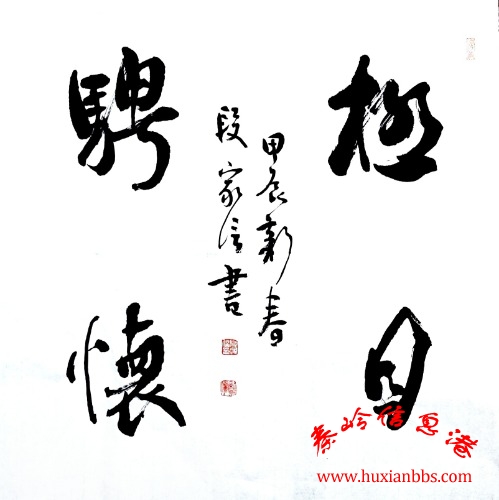 極目
騁懷
甲辰新春
段家信書
秦岭信息港
www.huxianbbs.com